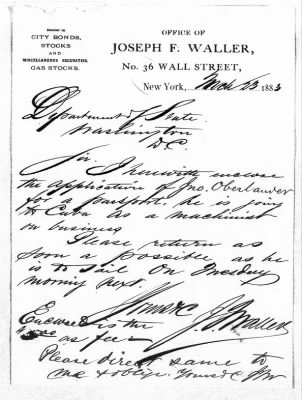 DEALER IN
CITY BONDS,
STOCKS
AND
MISCELLANEOUS SECURITIES,
GAS STOCKS.
OFFICE OF
JOSEPH F. WALLER,
No. 36 WALL STREET,
New York, Mch 23 1883
Department of State
Washington
D.C.
Sir. I herewith enclose
the application of Jno. Oberlander
for a passport, he is going
to Cuba as a machinist
on business
Please return as
soon as possible as he
is to sail on Tuesday
morng next.
Yours &c
J F Waller
Enclosed is the
as fee
Please direct same to
me & oblige. Yours &c JFW